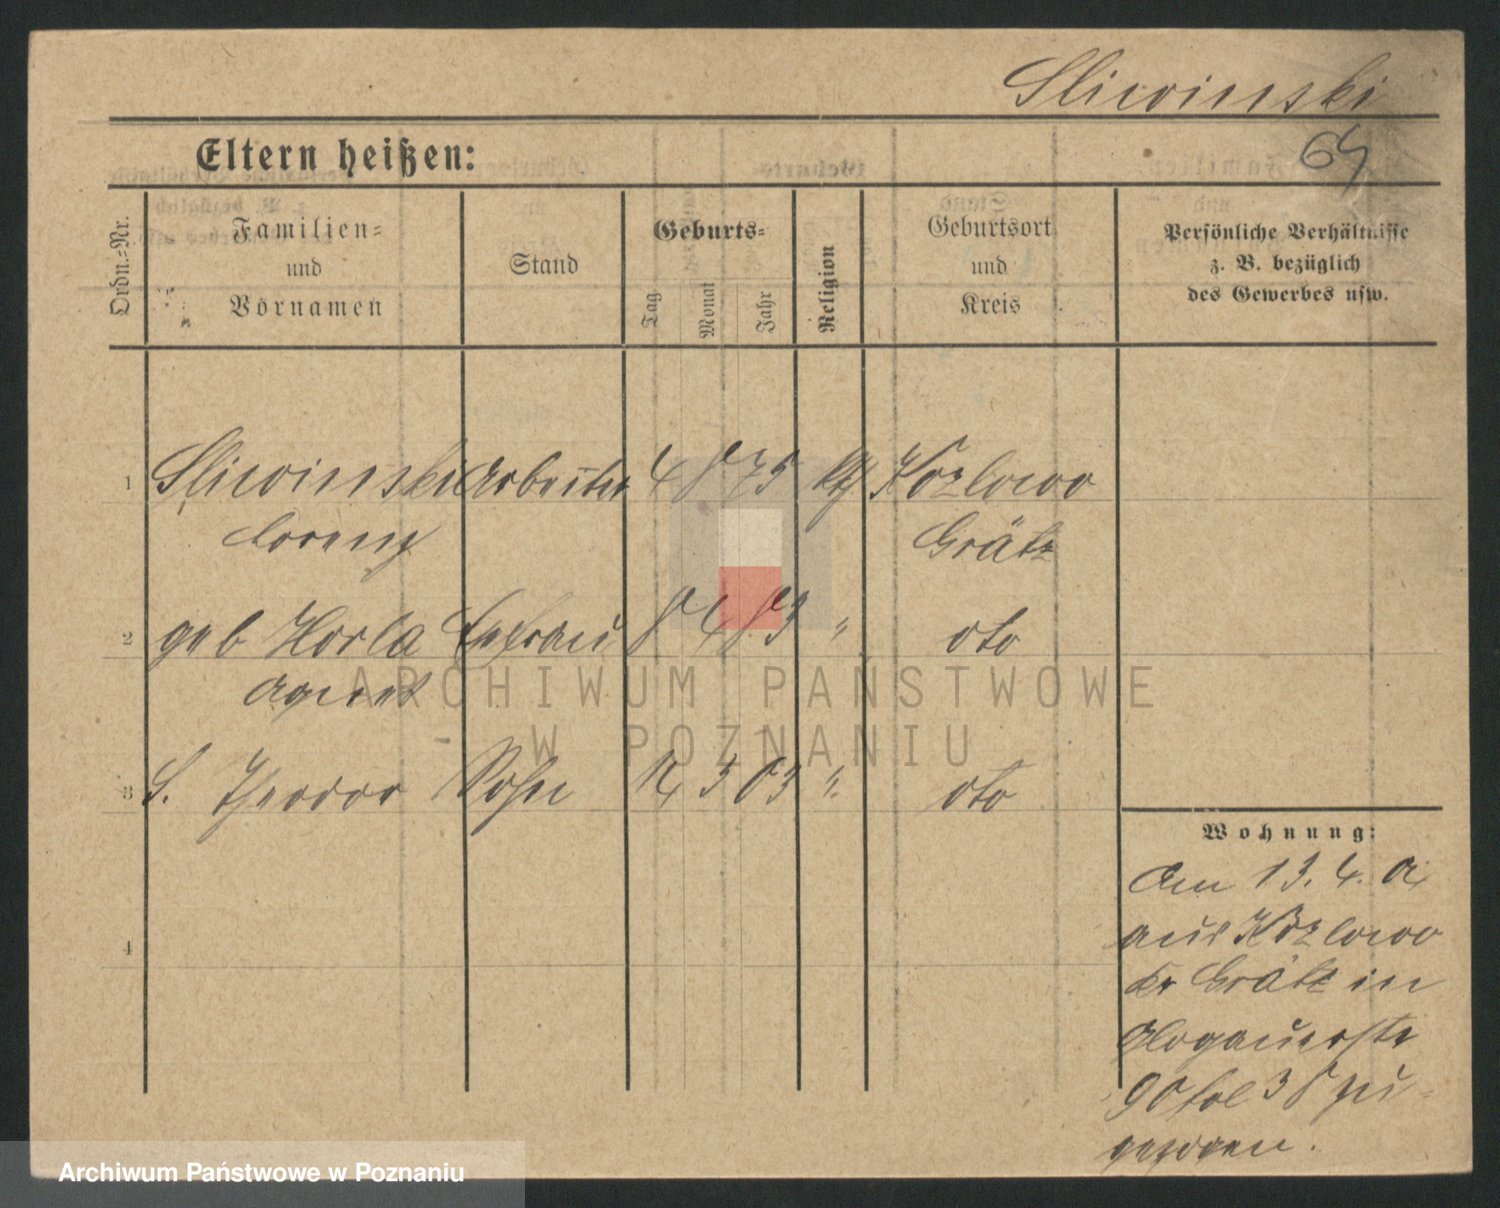 Sliwinski
64
Eltern heißen:
Ordn.-Nr.
Familien-
und
Vornamen
Stand
Geburts-
Tag
Monat
Jahr
Religion
Geburtsort
und
Kreis
Persönliche Verhältnisse
z. B. bezüglich
des Gewerbes usw.
1 Sliwinski Arbeiter 4 8 75 kth Kozlowo
Lorenz Grätz
2 geb Horla Ehefrau 8 4 83 " dto
Agnes
ARCHIWUM PAŃSTWOWE
W POZNANIU
3 S. Theodor Sohn 12 3 03 " dto
Wohnung:
Am 13. 4.
4
aus Kozlowo
Kr Grätz in
Glogauerstr
90 bei zu-
gezogen.
Archiwum Państwowe w Poznaniu